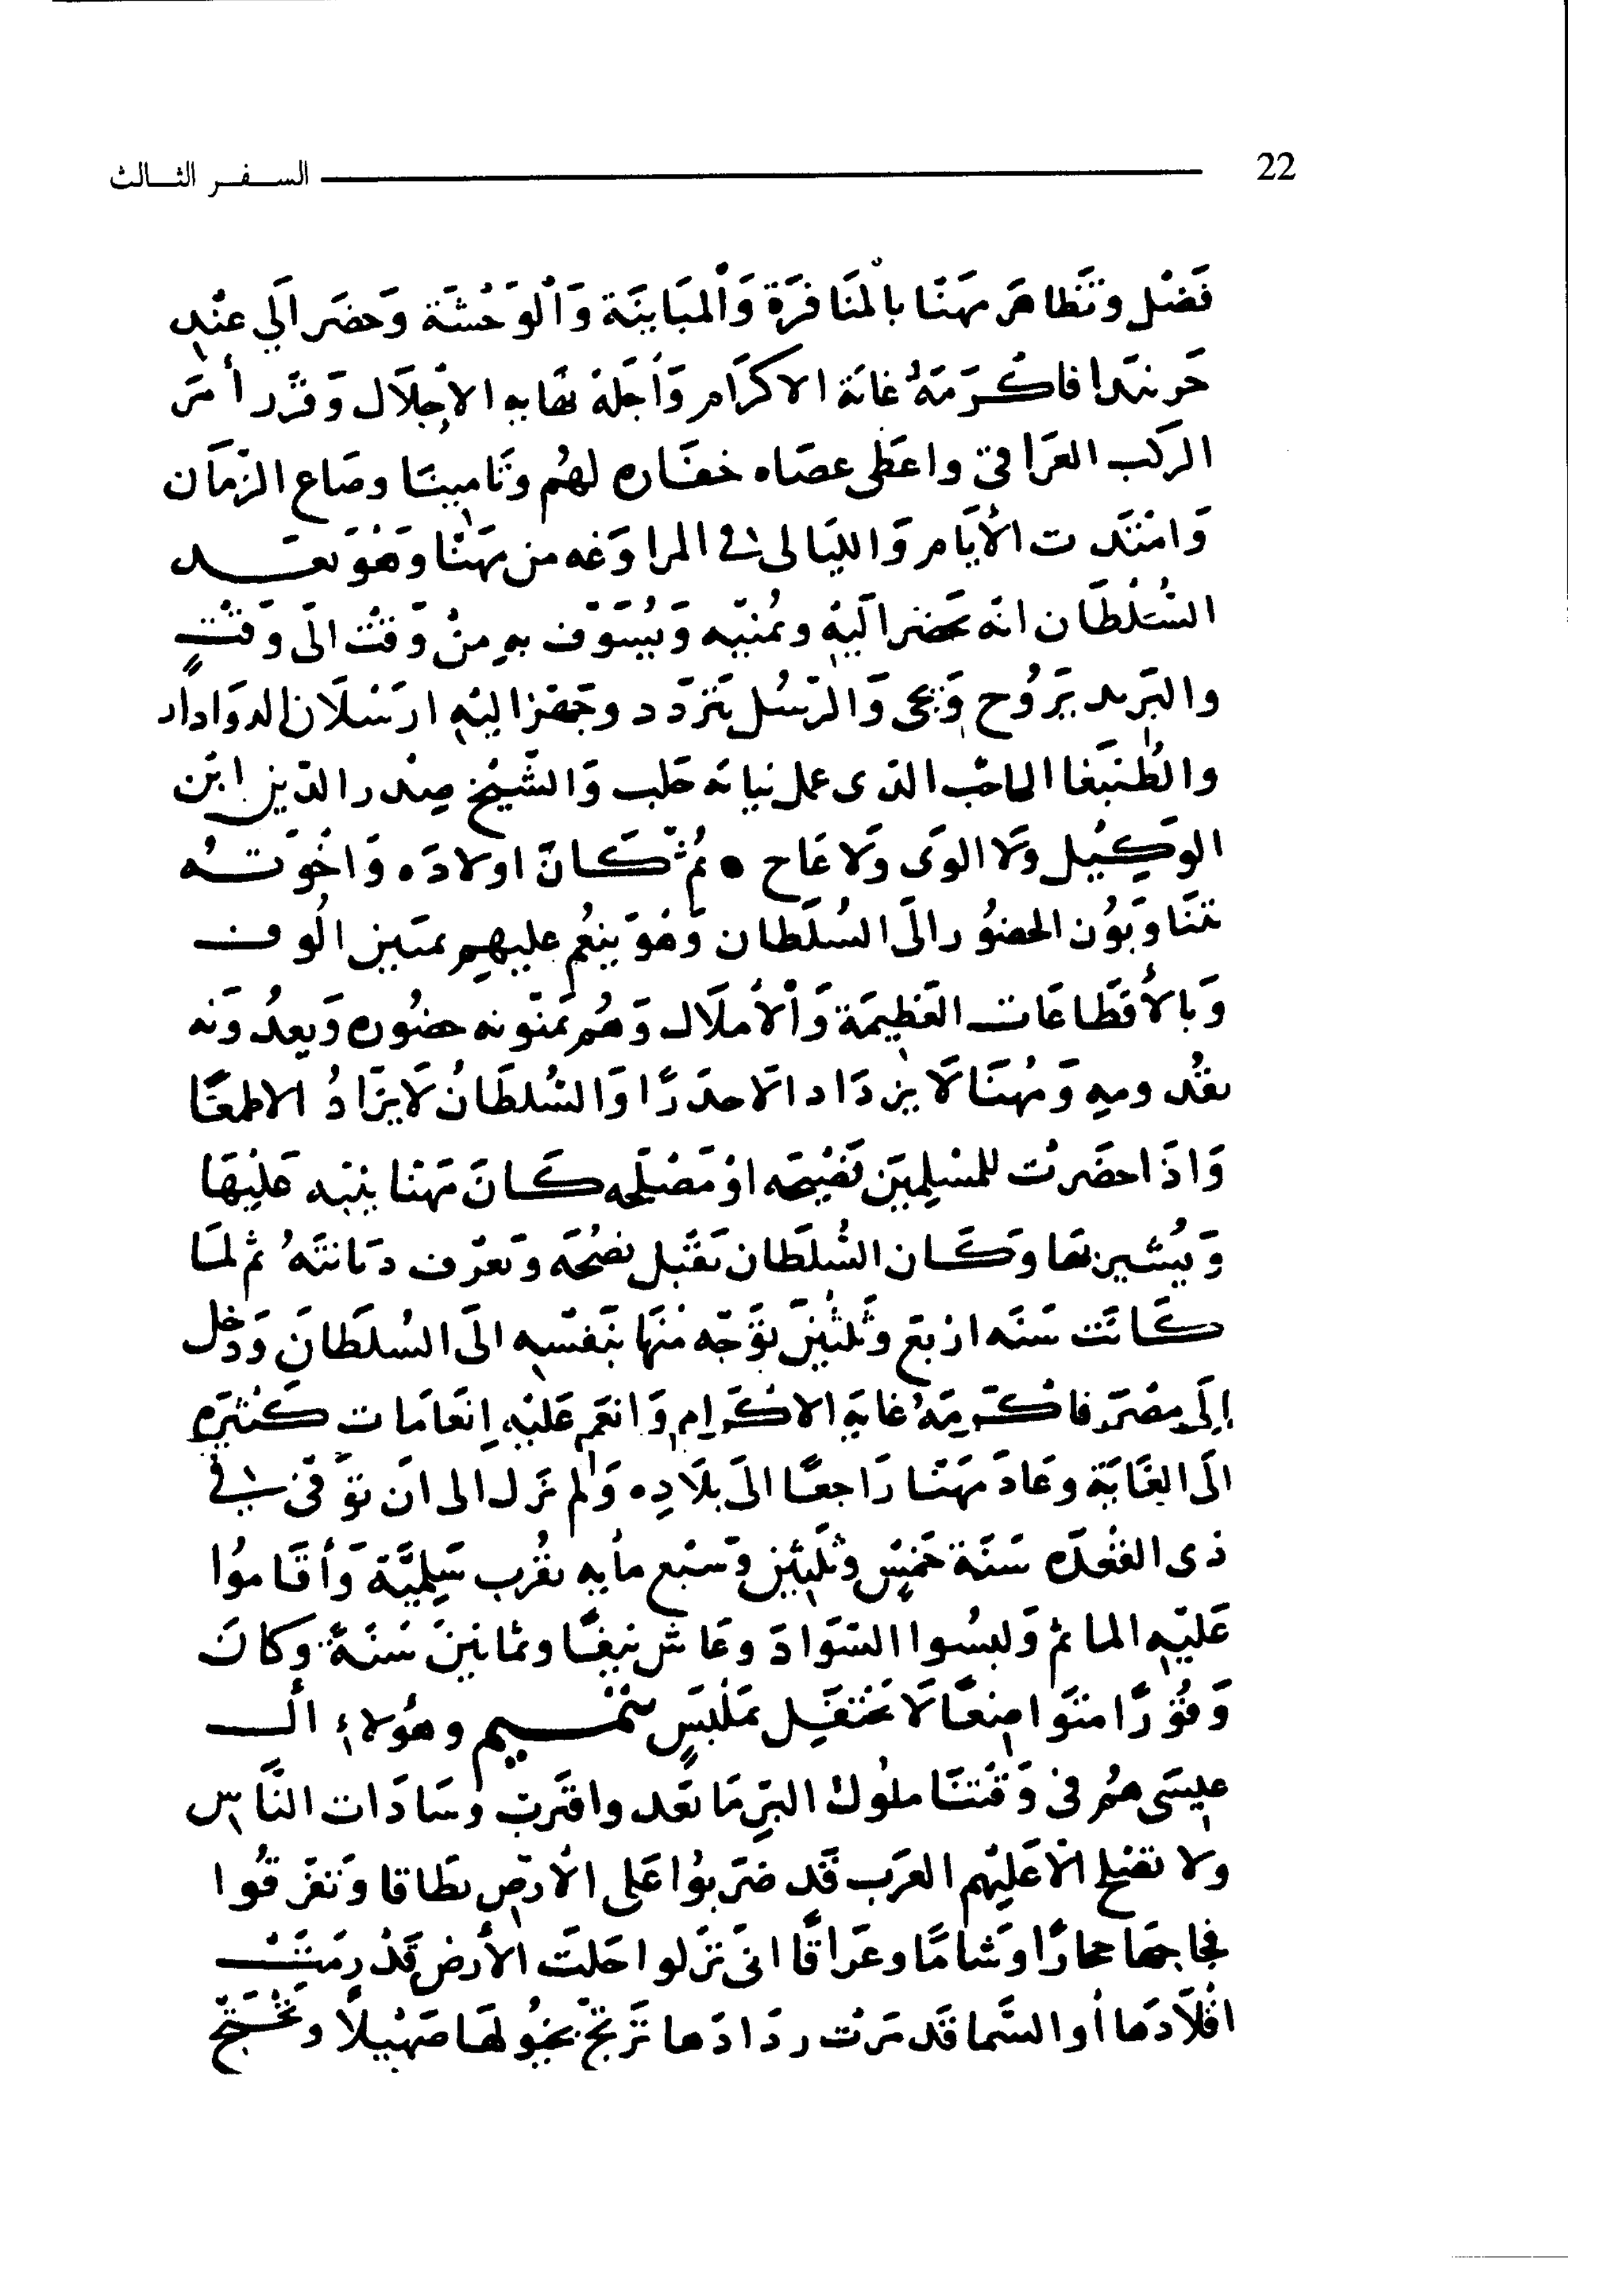 22 السفر الثالث
فَضْل وَتَظاهَر مهَنّا بالمُنَافرَة وَالمبَاينَة وَالْوَحْشَة وَحضَر الَي عنْد
خَربندا فاكْرَمَهُ غايَة الاكرَام وَأجَلهُ نهَاية الاجْلَال وَقرَّر أمرَ
الركب العرَاقي واعطى عصَاه خفَارة لهُم وَتامينًا وضاع الزمَان
وَامْتَدت الأيَام وَالليَالى فى المراوَغه من مهَنّا وَهُوَ يعد
السُّلْطَان انه يحضر اليْهِ ويُمنيه وَيُسَوّف به منْ وَقْت الَى وَقْتٍ
والبَريد يَرُوح وَيجى وَالرسُل تَتردَد وجهز اليْهِ ارسْلَان الدوَادار
والطُنبَغا الحاجب الذى عمل نيابة حَلب وَالشّيْخ صدر الدّين ابْن
الوَكِيْل وَلا الوَى وَلا عَاج • ثمّ كَانَ اولادَه وَاخْوَتُه
يتَنَاوَبُون الحضُور الَى السُلطان وَهُوَ ينعُم عليهِم بمئين الُوف
وَبالأقطَاعَات العَظيمَة وَالأملَاك وَهُم يمَنّونه حضُوره وَيعدُونَه
بقُدومه وَمُهنَّا لَا يزدَاد الَا حذَرًا وَالسُّلطَانُ لَا يزَادُ الا طمعًا
وَاذَا حضَرتْ للمسْلِمِيَن نَصيْحَه اوْ مَصْلَحَه كَانَ مهَنّا ينبّه عَلَيْهَا
وَيُشير بهَا وَكَان السُّلطَان يَقْبَل نصْحَه وَيعرف ديَانتَهُ ثم لمَّا
كَانَت سَنَه ارْبَع وَثَلثيْنَ توَجّه مُهَنّا بنَفسِه الَى السُلطَان وَدَخل
إِلَى مِصْرَ فاكْرَمَهُ غايَة الاكْرَام وَانعَم عَليْه اِنعَامَات كَثيْرَه
الَى الغَايَة وعَادَ مهَنّا رَاجعًا الَى بلَادِه وَلم يزَل الى ان تَوَفى فى
ذى القعْدَه سَنَة خَمس وَثلثِين وَسَبع مأيه بقُرب سَلَمِيَّة وَأقَامُوا
عَليْه الماتم وَلبسُوا السَّوَادَ وعَاش نيفًا وثمانينَ سَنَةً وَكانَ
وَقُورًا متَوَاضعًا لَا يَحْتَفِل بمَلْبَسٍ وهؤلاءِ الـ
عِيسَى هُم فى وَقْتنَا ملُوك البَرِّ مَا بَعُد واقتَرب وَسَادَات النَّاس
ولا تصْلح الّا عَليْهم العَرَب قَد ضرَبُوا عَلى الأرض نطَاقا وَتفَرّقُوا
فجاجهَا حجازًا وَشامًا وعرَاقًا انى نزَلوا حَلت الأرض قَدْ رمَت
افْلَاذهَا أو السَّما قَد مَرت رذَاذهَا تَرتجّ بخيُولهَا صَهْيلًا